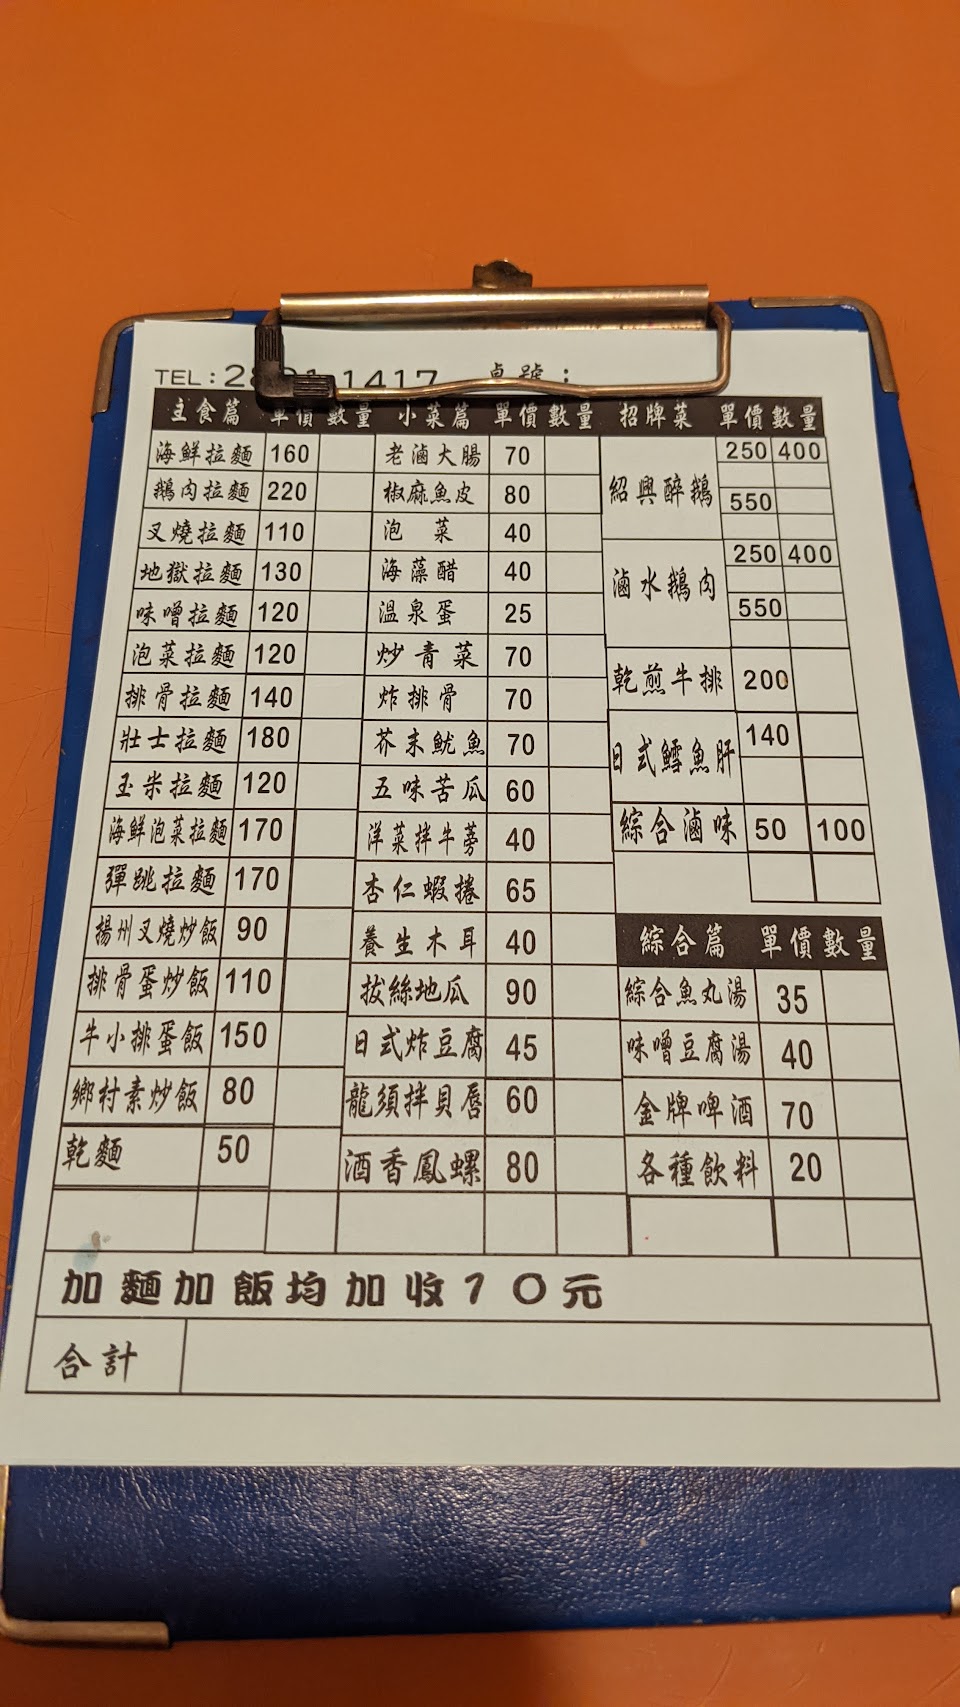 TEL: 1417 桌號:
主食篇 單價 數量 小菜篇 單價 數量 招牌菜 單價 數量
海鮮拉麵 160 老滷大腸 70 紹興醉鵝 250 400
鵝肉拉麵 220 椒麻魚皮 80 550
叉燒拉麵 110 泡菜 40 滷水鵝肉 250 400
地獄拉麵 130 海藻醋 40
味噌拉麵 120 溫泉蛋 25 550
泡菜拉麵 120 炒青菜 70 乾煎牛排 200
排骨拉麵 140 炸排骨 70
壯士拉麵 180 芥末魷魚 70 日式鱈魚肝 140
玉米拉麵 120 五味苦瓜 60
海鮮泡菜拉麵 170 洋菜拌牛蒡 40 綜合滷味 50 100
彈跳拉麵 170 杏仁蝦捲 65
揚州叉燒炒飯 90 養生木耳 40 綜合篇 單價 數量
排骨蛋炒飯 110 拔絲地瓜 90 綜合魚丸湯 35
牛小排蛋飯 150 日式炸豆腐 45 味噌豆腐湯 40
鄉村素炒飯 80 龍須拌貝唇 60 金牌啤酒 70
乾麵 50 酒香鳳螺 80 各種飲料 20
加麵加飯均加收10元
合計